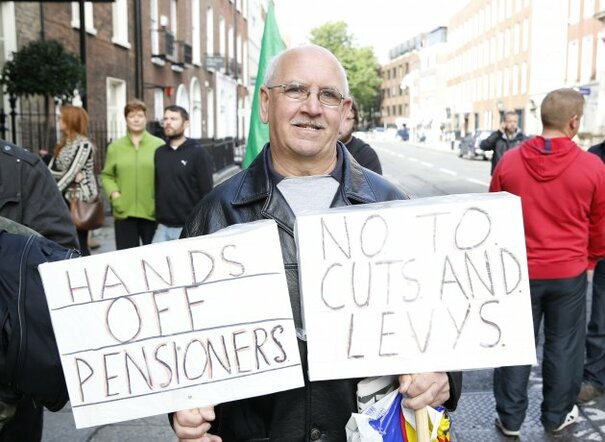 HANDS
OFF
PENSIONERS
NO TO.
CUTS AND.
LEVYS.